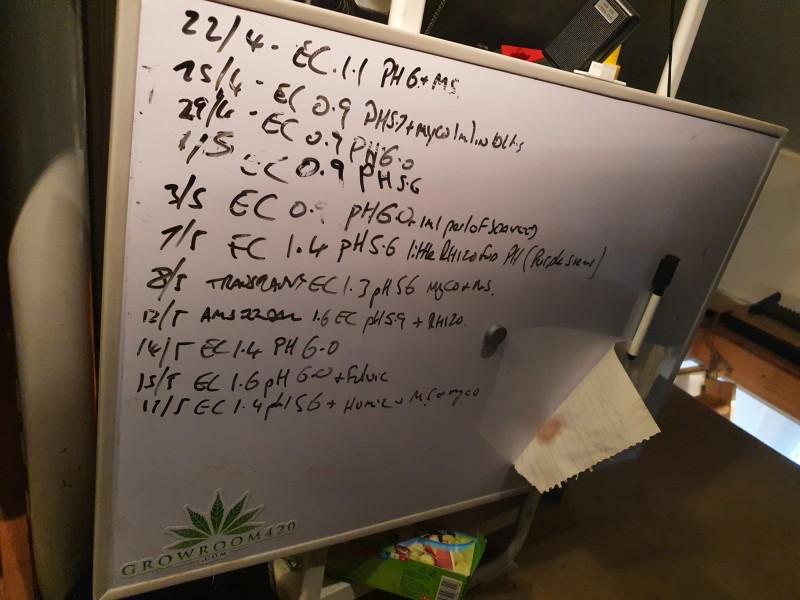 22/4 - EC.1.1 PH6+MS.
25/4 - EC 0.9 PH5.7+myco 1ml in
29/4 - EC 0.9 PH6.0
1/5 EC 0.9 PH5.6
3/5 EC 0. pH6.0 + 1ml per l of
7/5 EC 1.4 pH5.6 little Rhizo for PH (Purple stems)
8/5 TRANSPLANT EC 1.3 pH 5.6 myco + MS.
12/5 1.6 EC pH5.9 + RHIZO.
14/5 EC 1.4 PH 6.0
15/5 EC 1.6 pH 6.0 + Fulvic
17/5 EC 1.4 pH 5.6 + Humic + MS + myco
GROWROOM420
.COM